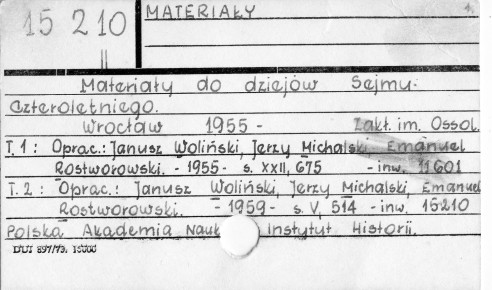 15 210
II
MATERIAŁY
Materiały do dziejów Sejmu
Czteroletniego.
Wrocław 1955 - Zakł. im. Ossol.
T. 1 : Oprac.: Janusz Woliński, Jerzy Michalski, Emanuel
Rostworowski. - 1955 - s. XXII, 675 - inw. 11601
T. 2 : Oprac.: Janusz Woliński, Jerzy Michalski, Emanuel
Rostworowski. - 1959 - s. V, 514 - inw. 15210
Polska Akademia Nauk Instytut Historii.